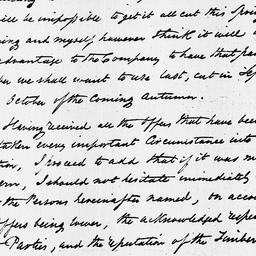 will be impossible to get it all cut this Spring
ing and myself, however think it well
advantage to the Company to have that par
we shall want to use last, cut in Sep
October of the Coming Autumn.
Having received all the offers that have been
taken every important Circumstance into
tion, I proceed to add that if it was m
cern, I should not hesitate immediately
the Persons hereinafter named, on acco
offers being lower, the acknowledged respec
Parties, and the reputation of the Timber